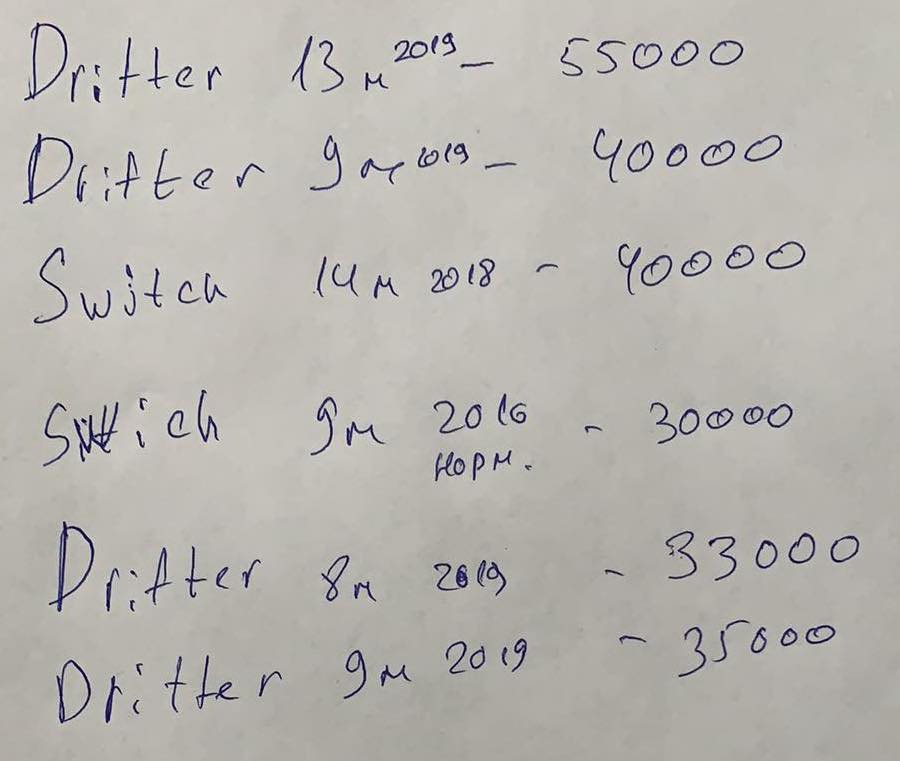 Drifter 13м 2019 - 55000
Drifter 9м 2019 - 40000
Switch 14м 2018 - 40000
Switch 9м 2016 - 30000
норм.
Drifter 8м 2019 - 33000
Drifter 9м 2019 - 35000